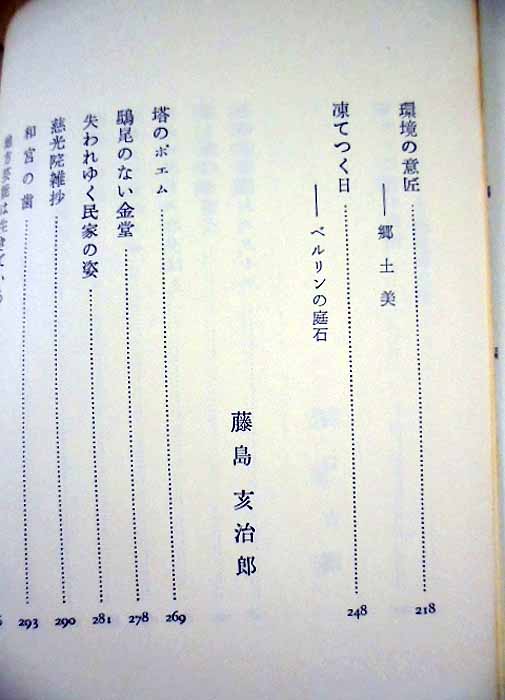 環境の意匠……218
——郷土美
凍てつく日……248
——ベルリンの庭石
藤島亥治郎
塔のポエム……269
鴟尾のない金堂……278
失われゆく民家の姿……281
慈光院雑抄……290
和宮の歯……293